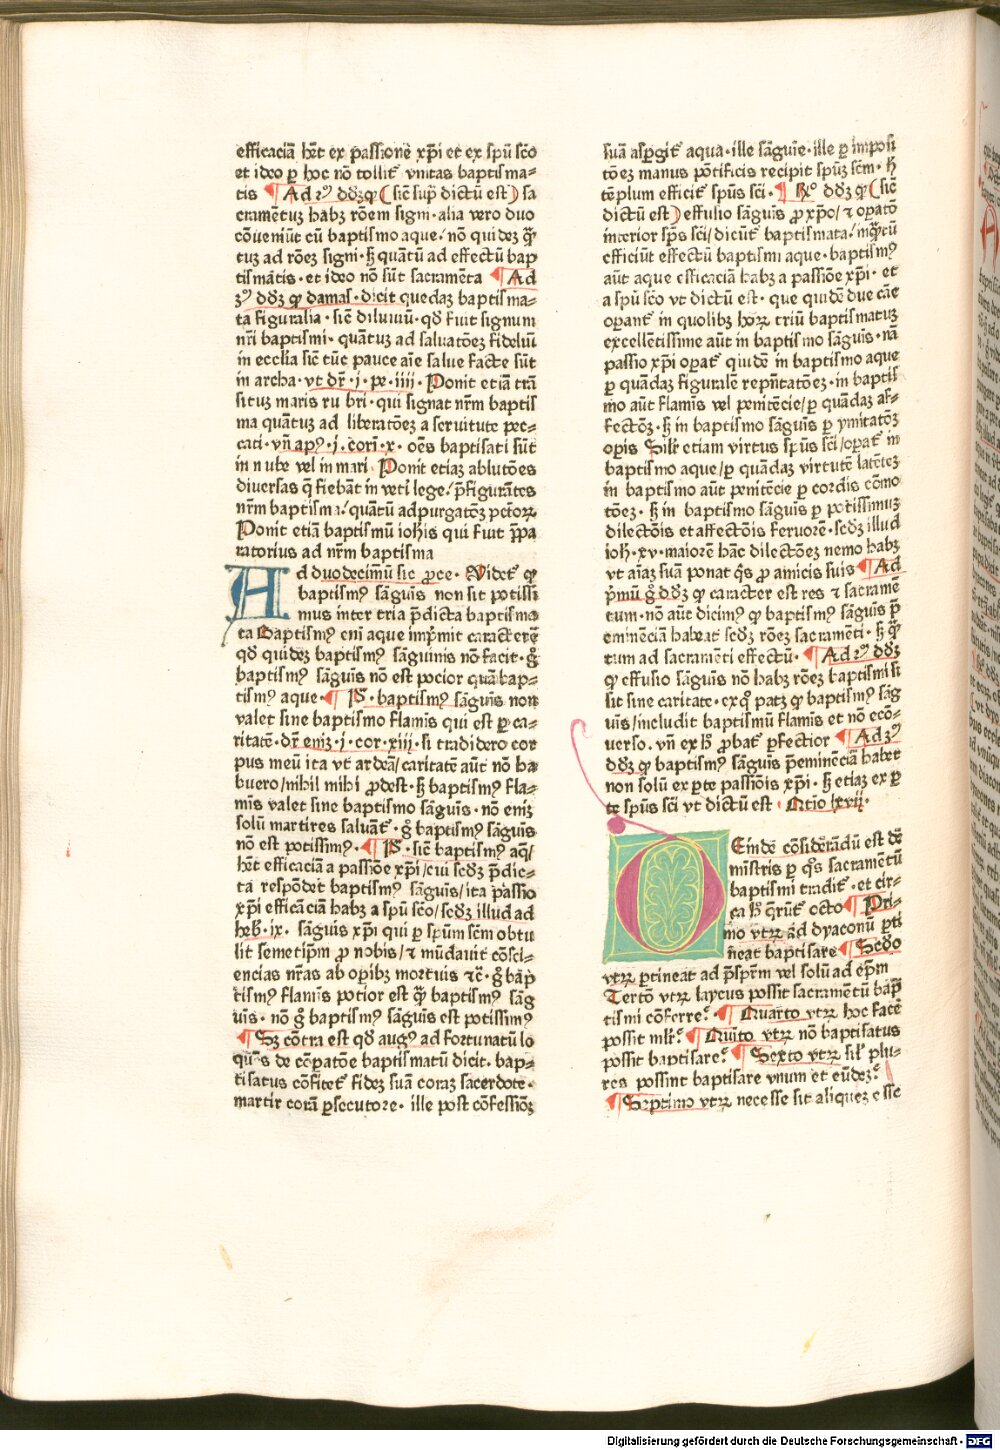 efficaciā hēt ex passione xp̄i et ex spū scō
et ideo ꝑ hoc nō tollit᷑ vnitas baptisma⸗
tis ¶ Ad 2ꝰ dōꝫ ꝙ (sic̄ sup̄ dictū est) sa
cramētuꝫ habꝫ rōem signi · alia vero duo
cōueniūt cū baptismo aque / nō quideꝫ q̄ꝫ
tuꝫ ad rōeꝫ signi · sꝫ quantū ad effectū bap
tismatis · et ideo nō sūt sacramēta ¶ Ad
3ꝰ dōꝫ ꝙ damaſ · dicit quedaꝫ baptisma⸗
ta figuralia · sic̄ diluuiū · qd̄ fuit signum
nr̄i baptismi · quātuꝫ ad saluatōeꝫ fideliuꝫ
in ecclia sic̄ tūc pauce aīe salue facte sūt
in archa · vt dr̄ · j · pe · iiij · Ponit etiā trā
situꝫ maris rubri · qui signat nr̄m baptis
ma quātuꝫ ad liberatōeꝫ a seruitute pec⸗
cati · vn̄ apꝰ · j · cori · x · oēs baptisati sūt
in nube vel in mari · Ponit etiaꝫ ablutōes
diuersas q̄ fiebāt in veti lege / p̄figurātes
nr̄m baptisma / quātū ad purgatōeꝫ pctoꝝ
Ponit etiā baptismū ioh̄is qui fuit p̄pa
ratorius ad nr̄m baptisma
Ad duodecimū sic ꝓce · Videt᷑ ꝙ
baptismꝰ sāguīs non sit potissi
mus inter tria p̄dicta baptisma
ta Baptismꝰ em̄ aque imp̄mit caracterē
qd̄ quideꝫ baptismꝰ sāguinis nō facit · g̊
baptismꝰ sāguīs nō est pocior quā bap⸗
tismꝰ aque · ¶ Pꝫ · baptismꝰ sāguīs non
valet sine baptismo flamīs qui est ꝑ ca⸗
ritatē · dr̄ eniꝫ · j · cor · xiij · si tradidero cor
pus meū ita vt ardeā / caritatē aūt nō ha
buero / nihil mihi ꝓdest · sꝫ baptismꝰ fla⸗
mīs valet sine baptismo sāguīs · nō eniꝫ
solū martires saluāt᷑ · g̊ baptismꝰ sāguīs
nō est potissimꝰ · ¶ Pꝫ · sic̄ baptismꝰ aq̄ /
hēt efficaciā a passione xp̄i / cui scd̄ꝫ p̄dic⸗
ta respōdet baptismꝰ sāguīs / ita passio
xp̄i efficāciā habꝫ a spū scō / scd̄ꝫ illud ad
heb̄ · ix · sāguis xp̄i qui ꝑ spūm scm̄ obtu
lit semetip̄m ꝓ nobis / ⁊ mūdauit cōsci⸗
encias nr̄as ab opibꝫ mortuis ⁊c̄ · g̊ bap̄
tismꝰ flamīs potior est q̄ꝫ baptismꝰ sāg
uīs · nō g̊ baptismꝰ sāguīs est potissimꝰ
¶ Sꝫ cōtra est qd̄ augꝰ ad fortunatū lo
quēs de cōpatōe baptismatū dicit · bap⸗
tisatus cōfitet᷑ fideꝫ suā coraꝫ sacerdote ·
martir corā ꝑsecutore · ille post cōfessioēꝫ
suā aspergit᷑ aqua · ille sāguīe · ille ꝑ imposi
tōeꝫ manus pōtificis recipit spūꝫ scm̄ · h̄
tēplum efficit᷑ spūs sci · ¶ Rº dōꝫ ꝙ (sic̄
dictū est) effusio sāguīs ꝓ xp̄o / ⁊ opatō
interior sp̄s sci / dicūt᷑ baptismata / inq̄ꝫtū
efficiūt effectū baptismi aque · baptismꝰ
aūt aque efficaciā habꝫ a passiōe xp̄i · et
a spū scō vt dictū est · que quidē due cāe
opant᷑ in quolibꝫ hoꝝ triū baptismatuꝫ
excellētissime aūt in baptismo sāguīs · nā
passio xp̄i opat᷑ quidē in baptismo aque
ꝑ quādaꝫ figuralē rep̄ntatōeꝫ · in baptis
mo aūt flamīs vel penitēcie / ꝑ quādaꝫ af⸗
fectōꝫ · sꝫ in baptismo sāguīs ꝑ ymitatōꝫ
opis Silr̄ etiam virtus spūs sci / opat᷑ in
baptismo aque / ꝑ quādaꝫ virtutē latētēꝫ
in baptismo aūt penitēcie ꝑ cordis cōmo
tōeꝫ · sꝫ in baptismo sāguīs ꝑ potissimuꝫ
dilectōis et affectōis feruorē · scd̄ꝫ illud
ioh̄ · xv · maiorē hāc dilectōeꝫ nemo habꝫ
vt aīaꝫ suā ponat q̄s ꝓ amicis suis ¶ Ad
p̄mū g̊ dōꝫ ꝙ caracter est res ⁊ sacramē
tum · nō aūt dicimꝰ ꝙ baptismꝰ sāguīs p̄
eminēciā habeat scd̄ꝫ rōeꝫ sacramēti · sꝫ q̄ꝫ
tum ad sacramēti effectū · ¶ Ad 2ꝰ dōꝫ
ꝙ effusio sāguīs nō habꝫ rōeꝫ baptismi si
sit sine caritate · ex q̊ patꝫ ꝙ baptismꝰ sāg
uīs / includit baptismū flamīs et nō ecō⸗
uerso · vn̄ ex h̄ ꝓbat᷑ ꝑfectior ¶ Ad 3ꝰ
dōꝫ ꝙ baptismꝰ sāguīs p̄eminēciā habet
non solū ex ꝑte passiōis xp̄i · sꝫ etiaꝫ ex ꝑ
te spūs sci vt dictū est · Q̄tio lxvij ·
DEinde cōsiderādū est de
mīstris ꝑ q̊s sacramētū
baptismi tradit᷑ · et cir⸗
ca h̄ q̄rūt᷑ octo ¶ Pri⸗
mo vtꝝ ad dyaconū ꝑti
neat baptisare ¶ Scd̄o
vtꝝ ꝑtineat ad p̄sp̄rm vel solū ad ep̄m
Tertō vtꝝ laycus possit sacramētū bap̄
tismi cōferre · ¶ Quarto vtꝝ hoc facē
possit mlr̄ · ¶ Quīto vtꝝ nō baptisatus
possit baptisare · ¶ Sexto vtꝝ sil̄ plu⸗
res possint baptisare vnum et eūdeꝫ ·
¶ Septimo vtꝝ necesse sit aliqueꝫ esse
Digitalisierung gefördert durch die Deutsche Forschungsgemeinschaft - DFG